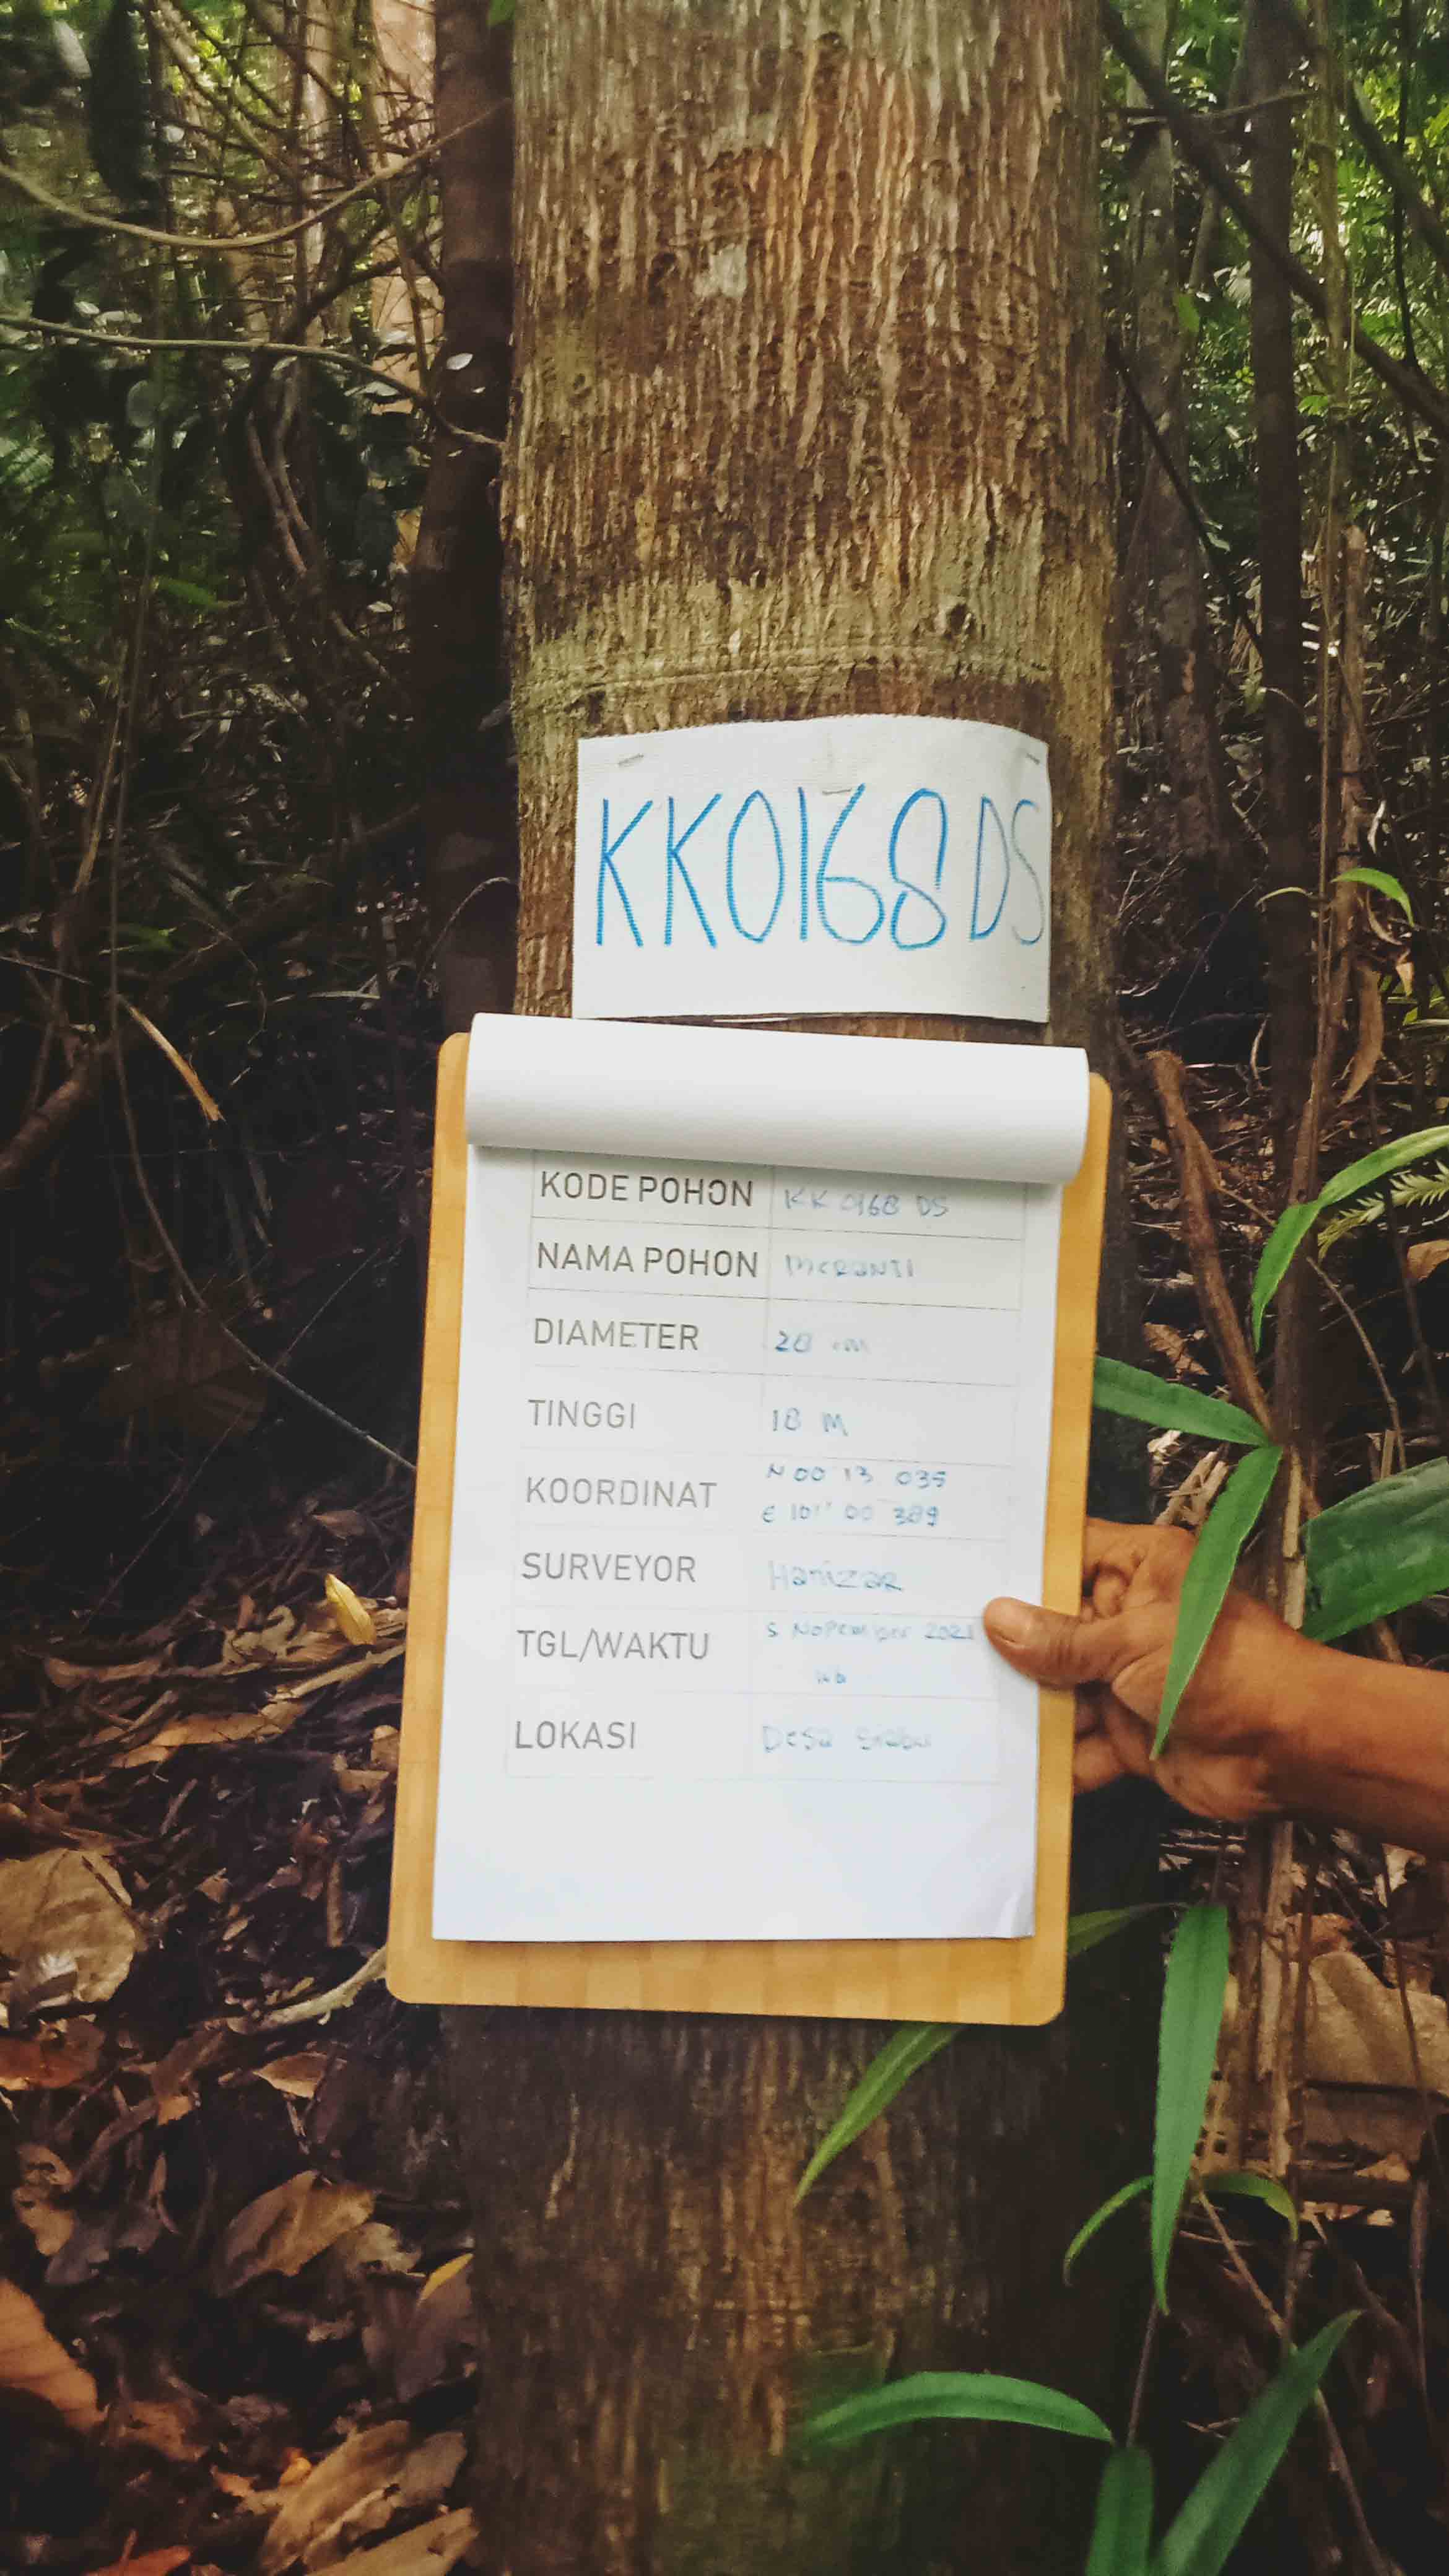 KK0168 DS
KODE POHON KK 0168 DS
NAMA POHON MERANTI
DIAMETER 28 cm
TINGGI 18 M
KOORDINAT N 00 13 035
E 101° 00 389
SURVEYOR Hanizar
TGL/WAKTU 5 Nopember 2021
LOKASI Desa